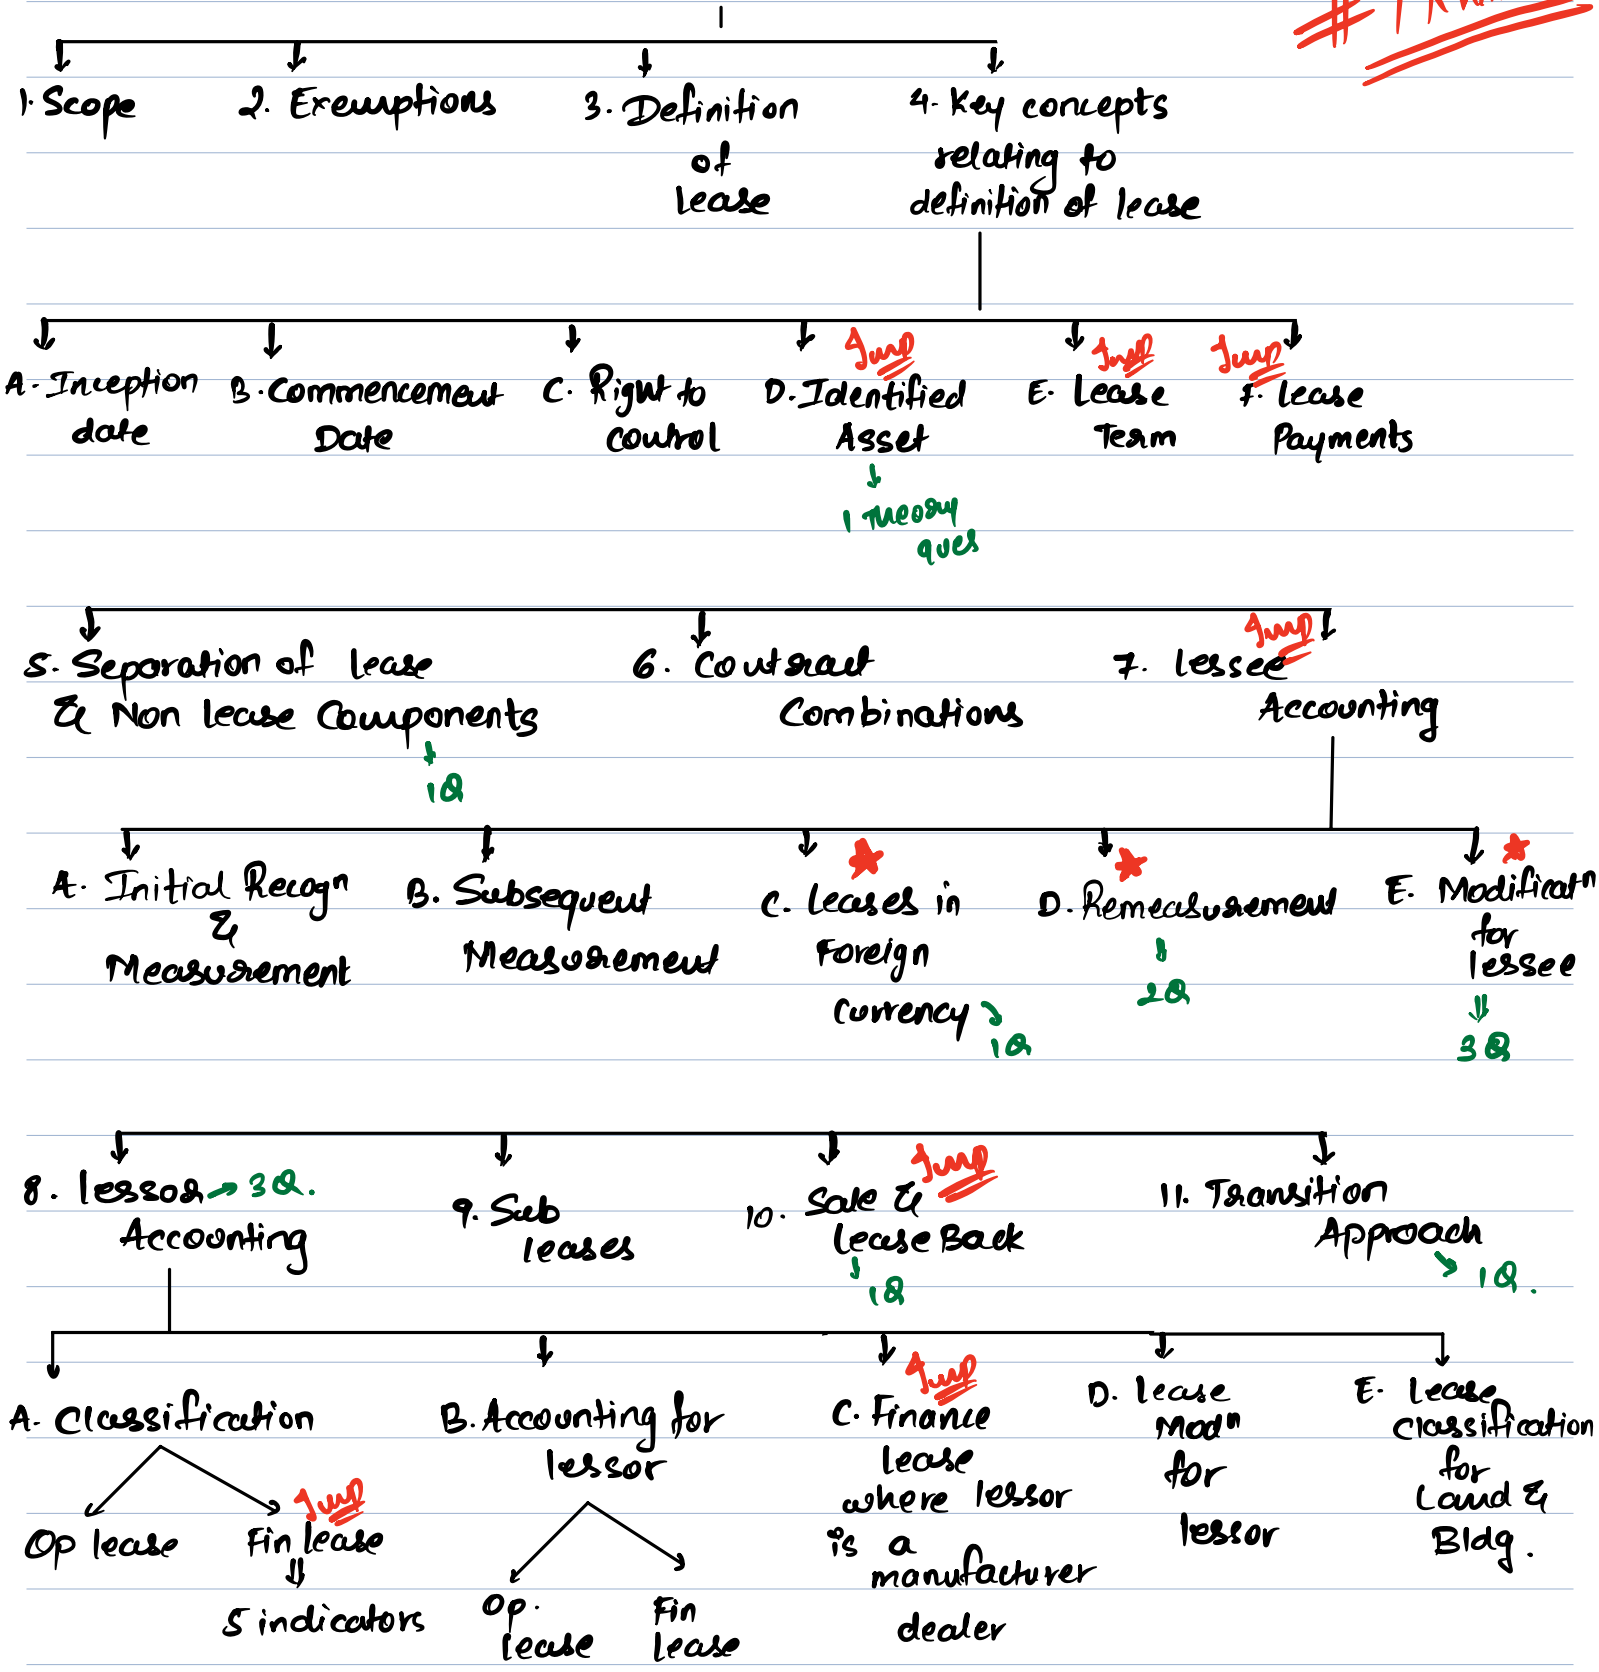 #
1. Scope
2. Exemptions
3. Definition
of
lease
4. Key concepts
relating to
definition of lease
A. Inception
date
B. Commencement
Date
C. Right to
control
Imp
D. Identified
Asset
1 Theory
ques
Imp
E. Lease
Term
Imp
F. Lease
Payments
5. Separation of lease
& Non lease Components
1Q
6. Contract
Combinations
Imp
7. lessee
Accounting
A. Initial Recogn
&
Measurement
B. Subsequent
Measurement
C. leases in
Foreign
Currency
1Q
D. Remeasurement
2Q
E. Modificatn
for
lessee
3Q
8. lessor → 3Q.
Accounting
9. Sub
leases
Imp
10. Sale &
lease Back
1Q
11. Transition
Approach
1Q.
A. Classification
Op lease
Imp
Fin lease
5 indicators
B. Accounting for
lessor
Op.
lease
Fin
lease
Imp
C. Finance
lease
where lessor
is a
manufacturer
dealer
D. lease
Modn
for
lessor
E. lease
classification
for
Land &
Bldg.